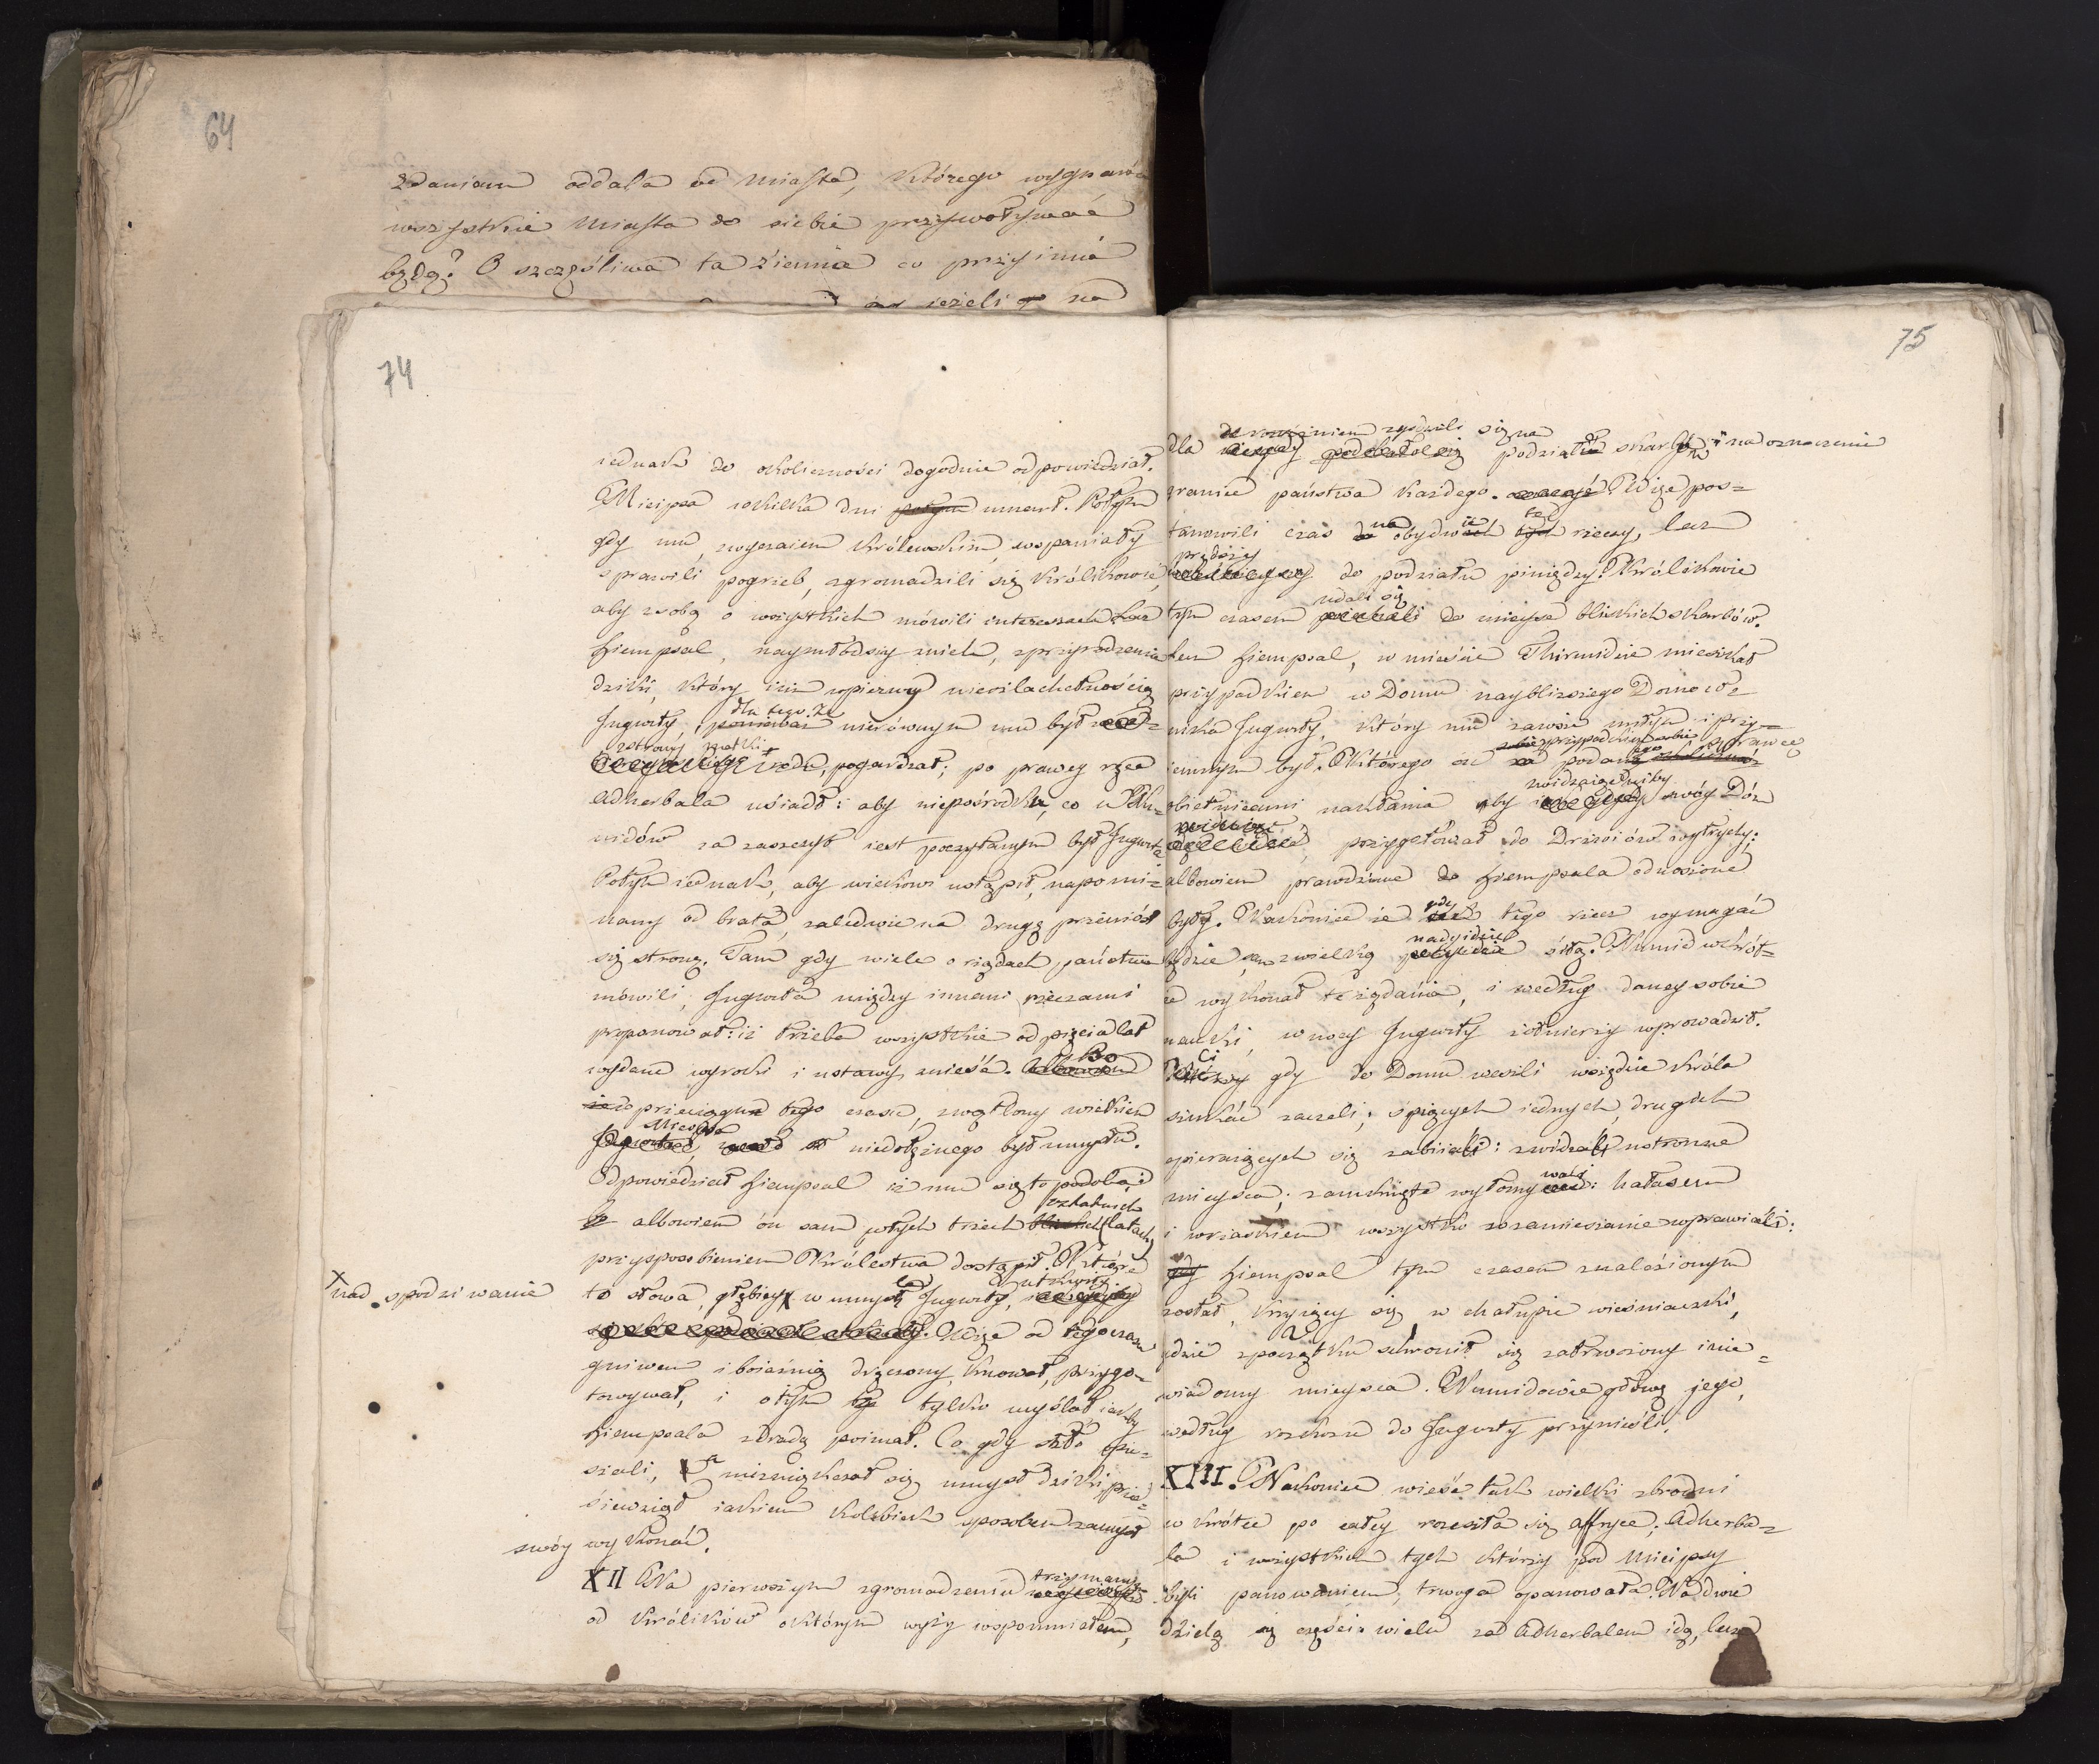 64
zdaniem oddala od miasta, którego wygnańca
wszystkie miasta do siebie przywoływać
będą? O szczęśliwa ta ziemia co przyimie
ieżeli na
74
iednak do okoliczności dogodnie odpowiedział.
Micipsa wkilka dni potym umarł. Potym
gdy mu, zwyczaiem królewskim, wspaniały
sprawili pogrzeb, zgromadzili się królikowie,
aby z sobą o wszystkich mówili interessach. Lecz
Hiempsal, naymłodszy z nich, z przyrodzenia
dziki, który iuż wpierwey nieszlachetnością
dla tego że
Jugurty, ponieważ nierównym mu był
z strony matki
rodu, pogardzał; po prawey ręce
Adherbala usiadł: aby niepośrodku, co u Nu-
midów za zaszczyt iest poczytanym był Jugurta
Potym iednak, aby wiekowi ustąpił, napomi-
nany od brata, zaledwie na drugą przeniósł
się stronę. Tam gdy wiele o rządach państwa
mówili, Jugurta między innemi rzeczami
proponował: iż trzeba wszystkie od pięciu lat
Bo
wydane wyroki i ustawy znieść. Albowiem
w przeciągu tego czasu, zwątlony wiekiem
Micipsa
niedołężnego był umysłu.
Odpowiedział Hiempsal iż mu się to podoba:
ostatnich
albowiem on sam w tych trzech bliskich (latach)
przysposobieniem Królestwa dostąpił. Które
to słowa, głębiey w umyśle Jugurty,
X nad spodziwanie
utkwiły
Więc od tego czasu
gniewem i boiaźnią dręczony, knował, przygo-
towywał, i o tym tylko myślał iakby
Hiempsala zdradą poimał. Co gdy szło opie-
szali, a niezmiękczał się umysł dziki, prze-
siewziął iakiem kolwiek sposobem zamysł
swóy wykonać.
trzymany
XII Na pierwszym zgromadzeniu
od królików o którym wyżey wspomniałem,
75
zgodzili się na
dla niezgody podobało się podziału skarbów, i na oznaczenie
granic państwa każdego. Więc pos-
na te
tanowili czas do obydwóch tych rzeczy, lecz
prędszy
do podziału piniędzy. Królikowie
udali się
tym czasem do mieysc bliskich skarbów.
Lecz Hiempsal, w mieście Thirmidzie mieszkał
przypadkiem w Domu naybliższego Domow-
nika Jugurty, który mu zawsze miłym i przy-
iemnym był. Którego on podaną
sprawcę
obietnicami nakłania aby swóy Dóm
przygotował do Drzwiów wytrychy;
albowiem prawdziwe do Hiempsala odnoszone
gdy
były. Nakoniec że tego rzecz wymagać
nadyidzie
będzie sam z wielką siłą. Numid wkrót-
ce wykonał te żądania, i według daney sobie
nauki, w nocy Jugurty żołnierzy wprowadził.
Ci
Którzy gdy do Domu weszli wszędzie króla
szukać zaczeli; spiących iednych, drugich
opieraiących się zabiiali: zwidzali ustronne
wali
mieysca; zamknięte wyłomy: hałasem
i wrzaskiem wszystko w zamieszanie wprawiali:
gdy Hiempsal tym czasem znalezionym
został, kryiący się w chałupie wieśniaczki,
gdzie z początku schronił się zatrwożony i nie-
wiadomy mieysca. Numidowie głowę jego,
według rozkazu do Jugurty przynieśli.
XIII. Nakoniec wieść tak wielki zbrodni
w krótce po całey rozeszła się Affryce; Adherba-
la i wszystkich tych którzy pod Micipsy
byli panowaniem, trwoga opanowała. Na dwie
dzielą się części: wielu za Adherbalem idą, lecz